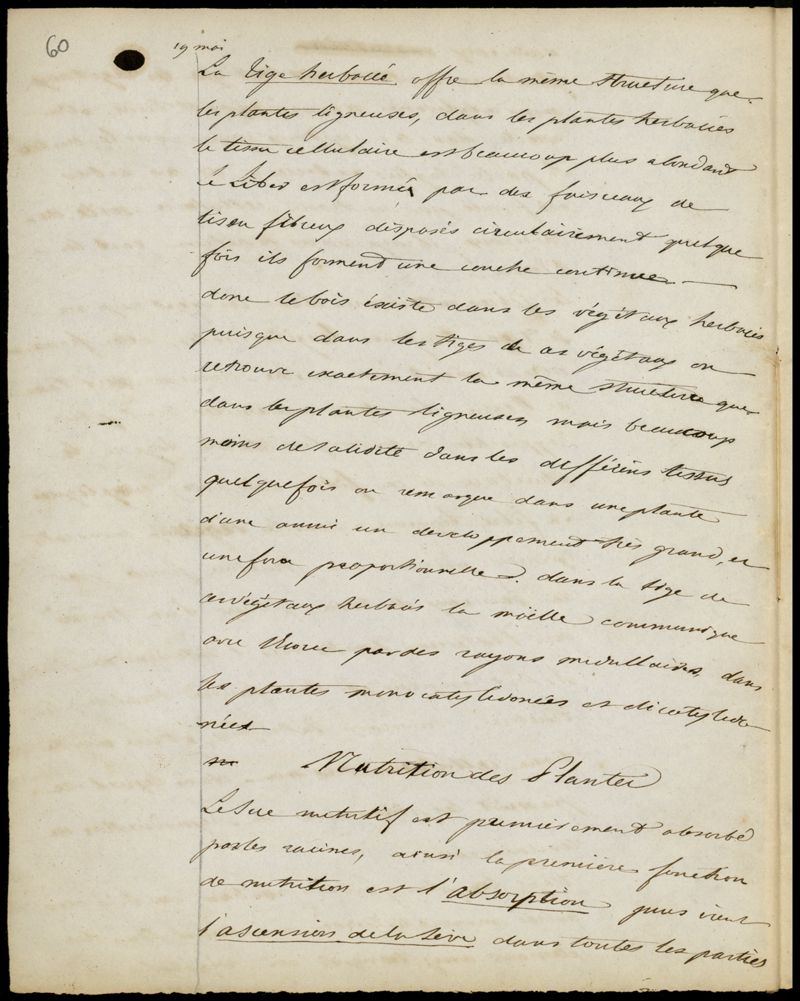 60
19 mai
La tige herbacée offre la même structure que
les plantes ligneuses, dans les plantes herbacées
le tissu cellulaire est beaucoup plus abondant
le Liber est formée par des faisceaux de
tissu fibreux disposés circulairement quelque
fois ils forment une couche continue —
donc le bois éxiste dans les végétaux herbacés
puisque dans les tiges de ces végétaux on
retrouve exactement la même structure que
dans les plantes ligneuses, mais beaucoup
moins de solidité dans les différens tissus
quelquefois on remarque dans une plante
d'une année un developpement très grand, et
une force proportionnelle. dans la tige de
ces végétaux herbacés la moëlle communique
avec l'écorce par des rayons médullaires, dans
les plantes monocotylédonées et dicotylédo
nées
Nutrition des Plantes
Le Suc nutritif est premièrement absorbé
par les racines, ainsi la première fonction
de nutrition est l'absorption puis vient
l'ascension de la Sève dans toutes les parties